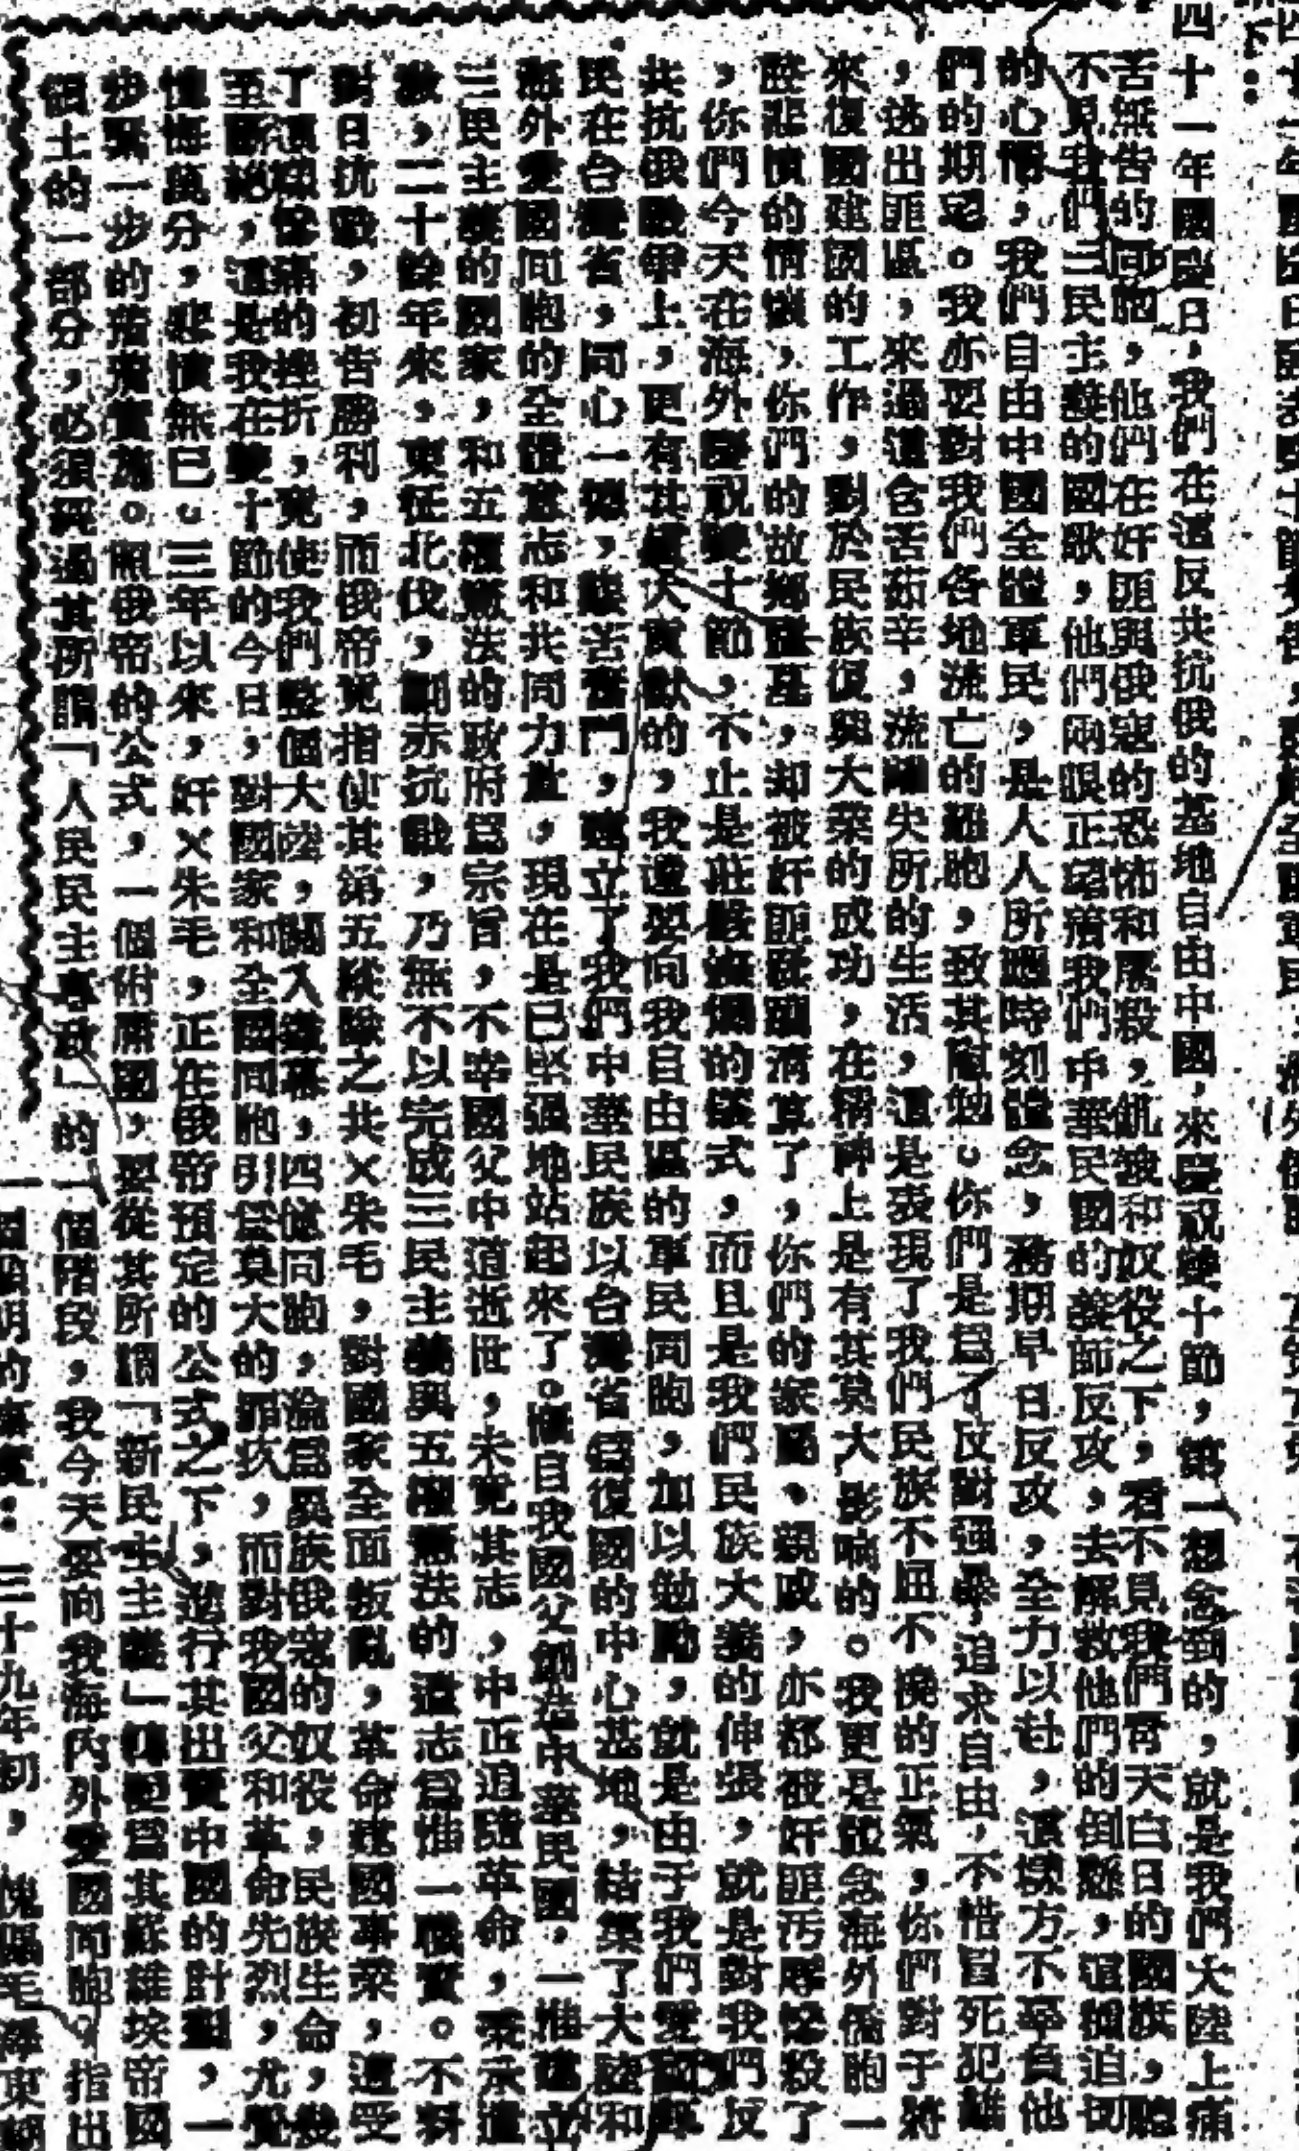 下：
四十一年國慶日，我們在這反共抗俄的基地自由中國，來慶祝雙十節，第一想念到的，就是我們大陸上痛
苦無告的同胞，他們在奸匪與俄寇的恐怖和屠殺，飢餓和奴役之下，看不見我們青天白日的國旗，聽
不見我們三民主義的國歌，他們兩眼正望着我們中華民國的義師反攻，去解救他們的倒懸，這種迫切
的心情，我們自由中國全體軍民，是人人所應時刻體念，務期早日反攻，全力以赴，這樣方不辜負他
們的期望。我亦要對我們各地流亡的難胞，致其慰勉。你們是為了反對強暴，追求自由，不惜冒死犯難
，逃出匪區，來過這含苦茹辛，流離失所的生活，這是表現了我們民族不屈不撓的正氣，你們對于將
來復國建國的工作，對於民族復興大業的成功，在精神上是有其莫大影響的。我更是懷念海外僑胞一
腔悲憤的情懷，你們的故鄉廬墓，却被奸匪清算了，你們的家屬、親戚，亦都被奸匪污辱殺了
，你們今天在海外慶祝雙十節，不止是壯嚴燦爛的儀式，而且是我們民族大義的伸張，就是對我們反
共抗俄戰爭上，更有其重大貢獻的，我還要向我自由區的軍民同胞，加以勉勵，就是由于我們愛國軍
民在台灣省，同心一德，艱苦奮鬥，建立了我們中華民族以台灣省為復國的中心基地，結集了大陸和
海外愛國同胞的全體意志和共同力量，現在是已堅強地站起來了。慨自我國父創造中華民國，一惟建立
三民主義的國家，和五權憲法的政府為宗旨，不幸國父中道逝世，未竟其志，中正追隨革命，秉承遺
教，二十餘年來，東征北伐，剿赤抗戰，乃無不以完成三民主義與五權憲法的遺志為惟一職責。不料
對日抗戰，初告勝利，而俄帝竟指使其第五縱隊之共×朱毛，對國家全面叛亂，革命建國事業，遭受
了這樣慘痛的挫折，竟使我們整個大陸，關入鐵幕，四億同胞，淪為異族俄寇的奴役，民族生命，幾
至斷絕，這是我在雙十節的今日，對國家和全國同胞引為莫大的罪疚，而對我國父和革命先烈，尤覺
惶悔萬分，悲憤無已。三年以來，奸×朱毛，正在俄帝預定的公式之下，進行其出賣中國的計劃，一
步緊一步的實施。照俄帝的公式，一個附庸國，要從其所謂「新民主主義」轉變為其蘇維埃帝國
領土的一部分，必須經過其所謂「人民民主專政」的一個階段，我今天要向我海內外愛國同胞，指出
三十九年初，毛澤東